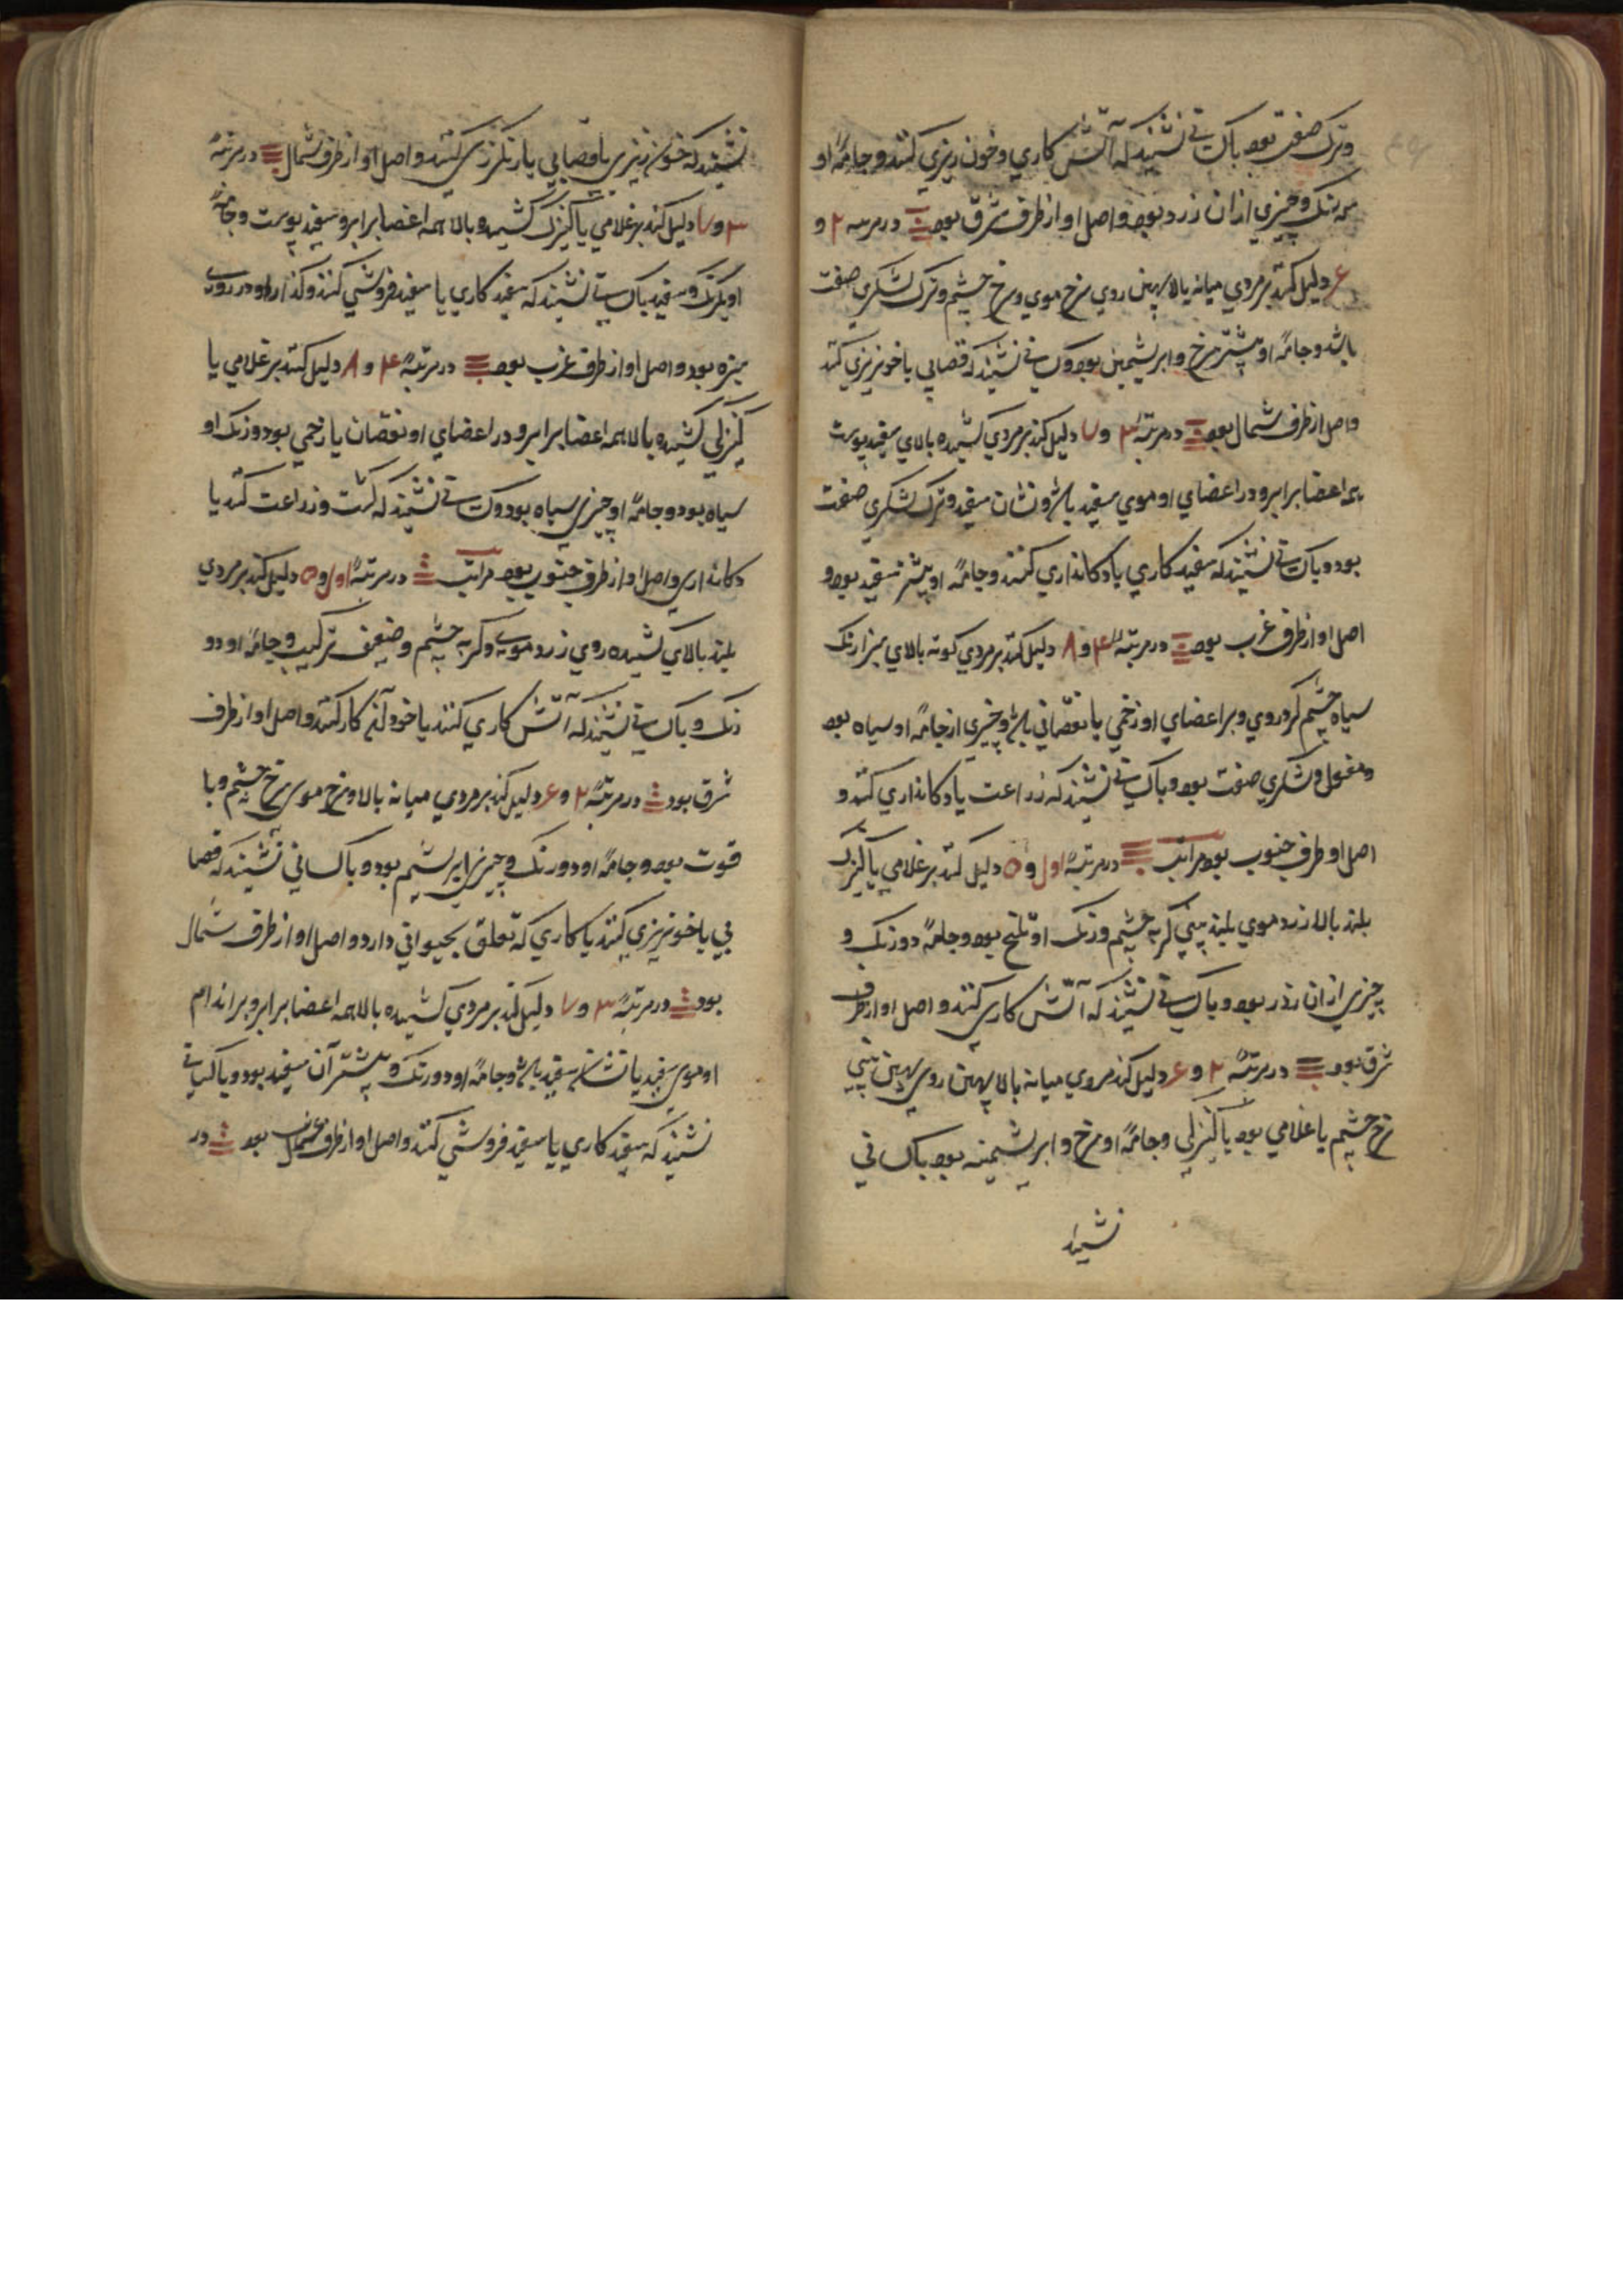 وترک صفت بود باکسانی نشیند که آتش کاری و خون ریزی کنند و جامهٔ او
سه رنگ و چیزی ازان زرد بود و اصل او از طرف شرق بود در مرتبه ۲ و
۶ دلیل کند بر مردی میانه بالا پهن روی سرخ موی و سرخ چشم و ترک لشکری صفت
باشد و جامهٔ او بیشتر سرخ و ابریشمین بود و کسانی نشیند که قصابی یا خونریزی کند
واصل از طرف شمال بود در مرتبهٔ ۳ و ۷ دلیل کند بر مردی کشیده بالای سفید پوست
همه اعضا برابر و در اعضای او موی سفید باشد و نشان سفید و ترک لشکری صفت
بود و باکسانی نشیند که سفید کاری یا دکانداری کنند و جامهٔ او بیشتر سفید بود و
اصل او از طرف غرب بود در مرتبهٔ ۴ و ۸ دلیل کند بر مردی کوته بالای سبزارنک
سیاه چشم کردروی و بر اعضای او زخمی یا نقصانی باشد و چیزی از جامهٔ او سیاه بود
و لشکری صفت بود و باکسانی نشیند که زراعت یا دکانداری کند و
اصل او طرف جنوب بود مراتب در مرتبهٔ اول و ۵ دلیل کند بر غلامی یا کنیزک
بلند بالا زرد موی بلند بینی کربه چشم و رنک او تلخ بود و جامهٔ دورنک و
چیزی ازان زرد بود و باکسانی نشیند که آتش کاری کنند و اصل او از طرف
شرق بود در مرتبهٔ ۲ و ۶ دلیل کند مردی میانه بالا پهن روی پهن بینی
سرخ چشم یا غلامی بود یا کنیزکی و جامهٔ او سرخ و ابریشمینه بود باکسانی
نشیند
نشیند که خون ریزی یا قصابی یا رنکرزی کنند و اصل او از طرف شمال در مرتبهٔ
۳ و ۷ دلیل کند بر غلامی یا کنیزک کشیده بالا همه اعضا برابر و سفید پوست و جامهٔ
او یکرنک و سفید باکسانی نشیند که سفید کاری یا سفید فروشی کنند و کذار او در روی
سبزه بود و اصل او از طرف غرب بود در مرتبهٔ ۴ و ۸ دلیل کند بر غلامی یا
کنیزکی کشیده بالا همه اعضا برابر و در اعضای او نقصان یا زخمی بود و رنک او
سیاه بود و جامهٔ او چیزی سیاه بود و کسانی نشیند که کشت و زراعت کند یا
دکانداری و اصل او از طرف جنوب بود مراتب در مرتبهٔ اول و ۵ دلیل کند بر مردی
بلند بالای کشیده روی زرد موی و کربه چشم و ضعیف ترکیب و جامهٔ او دو
رنک و باکسانی نشیند که آتش کاری کنند یا خود آن کار کند و اصل او از طرف
شرق بود در مرتبهٔ ۲ و ۶ دلیل کند بر مردی میانه بالا و سرخ موی سرخ چشم و با
قوت بود و جامهٔ او دورنک و چیزی ابریشم بود و باکسانی نشیند که قصا
بی یا خونریزی کنند یا کاری که تعلق بحیوانی دارد و اصل او از طرف شمال
بود در مرتبهٔ ۳ و ۷ دلیل کند بر مردی کشیده بالا همه اعضا برابر و بر اندام
او موی سفید یا نشان سفید باشد و جامهٔ او دورنک و بیشتر آن سفید بود و باکسانی
نشیند که سفید کاری یا سفید فروشی کند و اصل او از طرف بود در